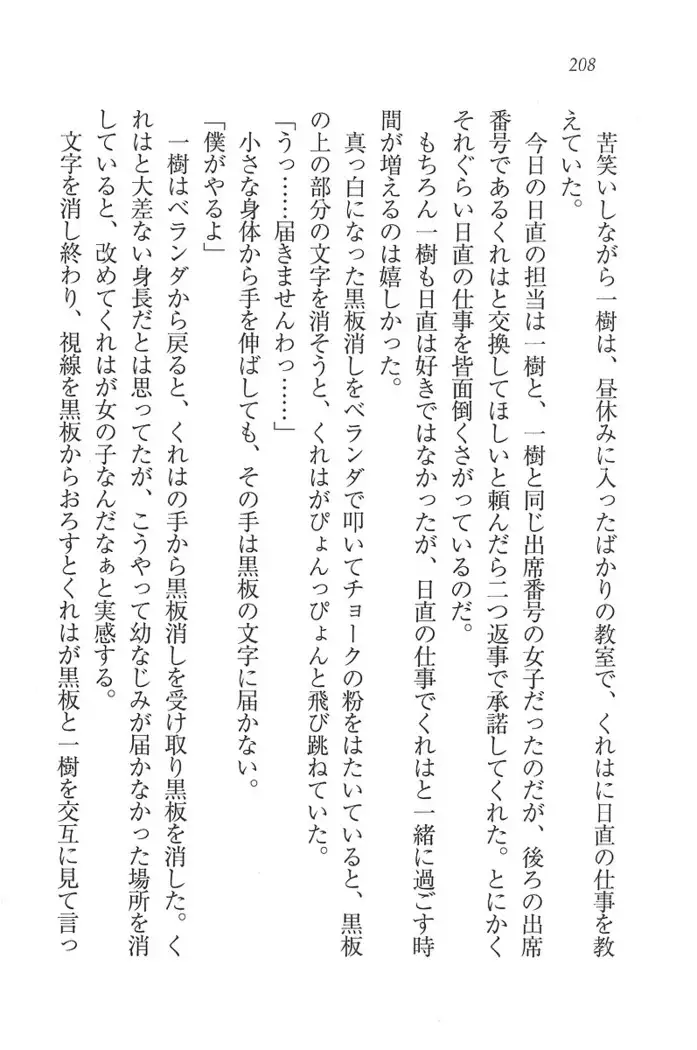 208
苦笑いしながら一樹は、昼休みに入ったばかりの教室で、くれはに日直の仕事を教
えていた。
今日の日直の担当は一樹と、一樹と同じ出席番号の女子だったのだが、後ろの出席
番号であるくれはと交換してほしいと頼んだら二つ返事で承諾してくれた。とにかく
それぐらい日直の仕事を皆面倒くさがっているのだ。
もちろん一樹も日直は好きではなかったが、日直の仕事でくれはと一緒に過ごす時
間が増えるのは嬉しかった。
真っ白になった黒板消しをベランダで叩いてチョークの粉をはたいていると、黒板
の上の部分の文字を消そうと、くれはがぴょんっぴょんと飛び跳ねていた。
「うっ……届きませんわっ……」
小さな身体から手を伸ばしても、その手は黒板の文字に届かない。
「僕がやるよ」
一樹はベランダから戻ると、くれはの手から黒板消しを受け取り黒板を消した。く
れはと大差ない身長だとは思ってたが、こうやって幼なじみが届かなかった場所を消
していると、改めてくれはが女の子なんだなぁと実感する。
文字を消し終わり、視線を黒板からおろすとくれはが黒板と一樹を交互に見て言っ